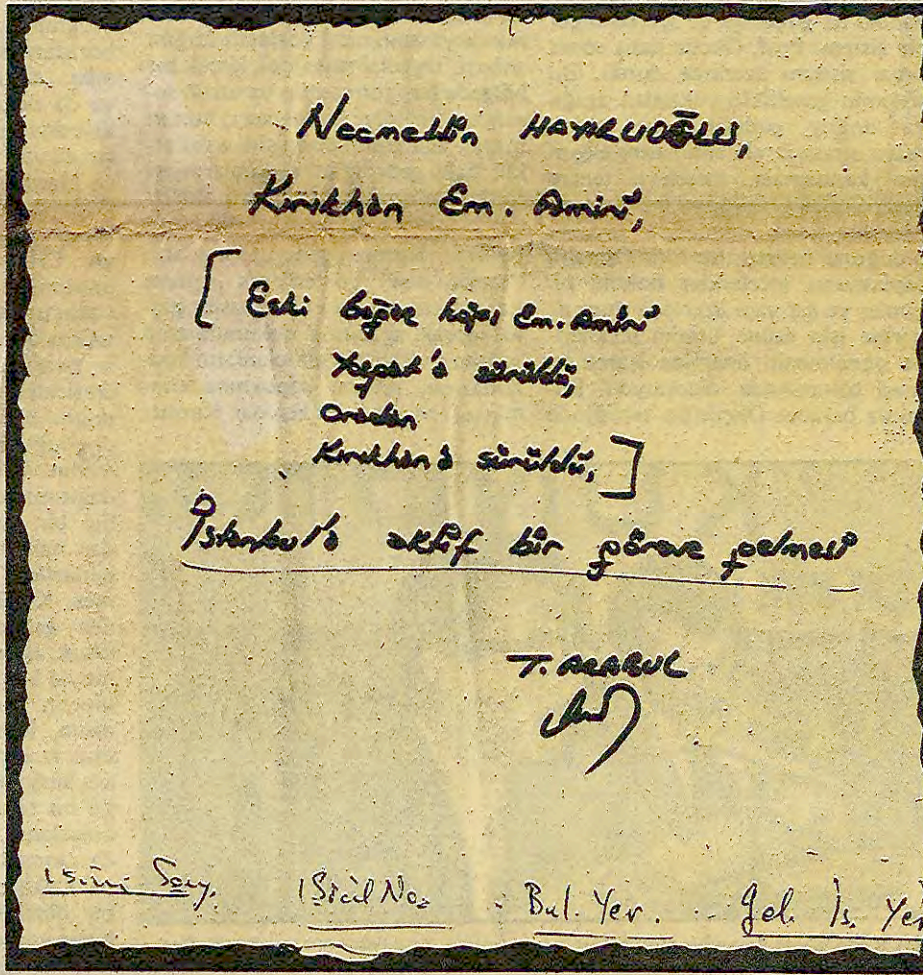 Necmettin HAYIRLIOĞLU,
Kırıkhan Em. Amiri,
[ Eski Em. Amiri
sürüldü,
oradan
Kırıkhan'a sürüldü, ]
İstanbul'a aktif bir göreve gelmesi
T. ARARUL
Soy.
Sicil No:
Bul. Yer.
Gel. İs. Yer